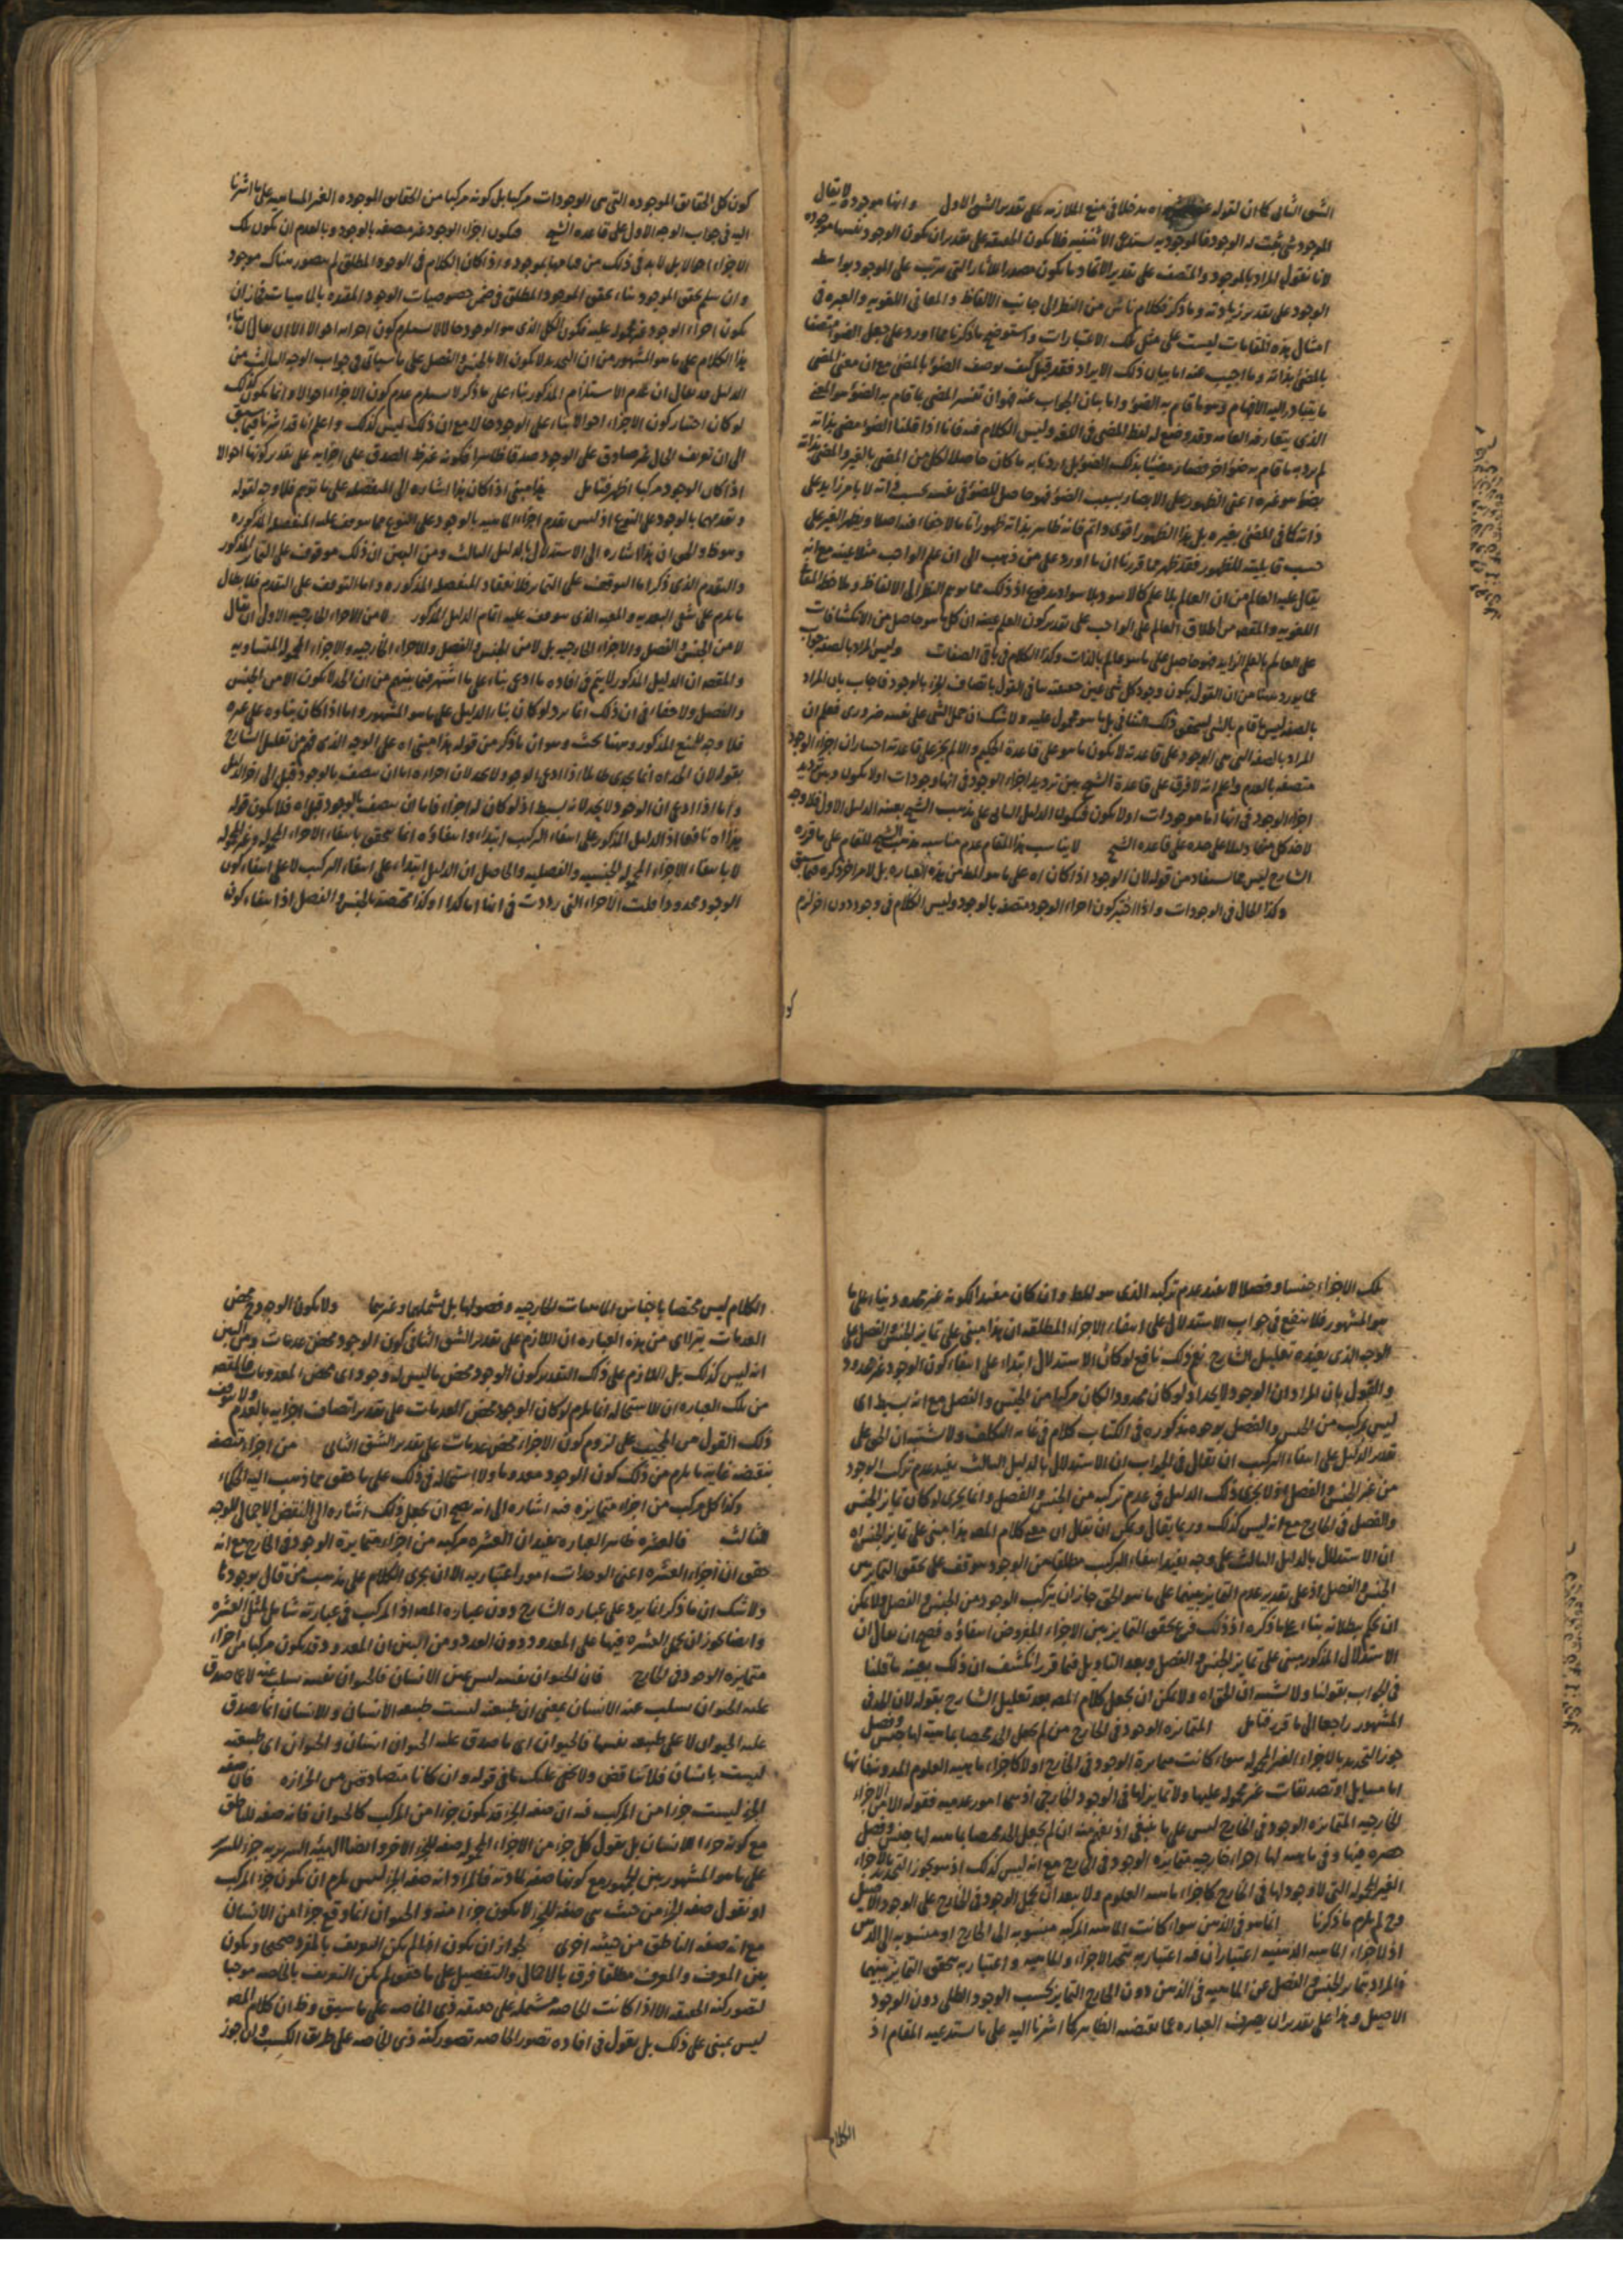 الشق الثانى كما ان لقوله مدخلا فى منع الملازمه على تقدير الشق الاول وانها موجودة لا يقال
الموجود شئ ثبت له الوجود فالموجوديه استدعى الاثنينيه فلا يكون الحقيقه على تقدير ان يكون الوجود نفسها موجوده
لانا نقول المراد بالموجود والمتصف على تقدير الاتحاد ما يكون مصدر الاثار التى مترتب على الموجود بواسطه
الوجود على تقدير زيادته وما ذكر فكلام ناش من النظر الى جانب الالفاظ والمعانى اللغويه والعبره فى
امثال هذه المقامات ليست على مثل تلك الاعتبارات واستوضح ما ذكرنا مما اورد على جعل الضوء متصفا
بالمضئ بذاته وما اجيب عنه اما بيان ذلك الايراد فقد قيل كيف يوصف الضوء بالمضئ مع ان معنى المضى
ما يتبادر اليه الافهام وهو ما قام به الضوء واما بيان الجواب عنه فهو ان تفسير المضى بما قام به الضوء هو المعنى
الذى يتعارفه العامه وقد وضع له لفظ المضى فى اللغه وليس الكلام فيه فانا اذا قلنا الضوء مضى بذاته
لم نرد به ما قام به ضوء اخر فصار مضيئا بذلك الضوء بل اردنا به ما كان حاصلا لكل من المضى بالغير والمضى بذاته
بضوء هو غيره اعنى الظهور على الابصار بسبب الضوء فهو حاصل للضوء فى نفسه بحسب ذاته لا بامر زايد على
ذاته كما فى المضئ بغيره بل هذا الظهور اقوى واتم فانه ظاهر بذاته ظهورا تاما لا خفاء فيه اصلا ويظهر الغير على
حسب قابليته للظهور فقد ظهر مما قررنا ان ما اورد على من ذهب الى ان علم الواجب مثلا عينه مع انه
يقال عليه العالم من ان العالم بلا علم كالاسود بلا سواد مدفوع اذ ذلك مما يوهم النظر الى الالفاظ وملاحظ المعانى
اللغويه والمقصود من اطلاق العالم على الواجب على تقدير كون العلم عينه ان كل ما هو حاصل من الانكشافات
على العالم بالعلم الزايد فهو حاصل على ما هو عالم بالذات وكذا الكلام فى باقى الصفات وليس المراد بالصفه جواب
عما يورد ههنا من ان القول بكون وجود كل شئ عين حقيقته ينافى القول باتصاف الجزء بالوجود فاجاب بان المراد
بالصفه ليس ما قام بالشئ ليتحقق ذلك التنافى بل ما هو محمول عليه ولا شك ان حمل الشئ على نفسه ضرورى فعلم ان
المراد بالصفه التى هى الوجود على قاعدته لا يكون ما هو على قاعدة الحكيم والا لم يجز على قاعدته اختيار ان اجزاء الوجود
متصفه بالعدم واعلم انه لا فرق على قاعدة الشيخ بين ترديد اجزاء الوجود فى انها وجودات اولا يكون وبين ترديد
اجزاء الوجود فى انها اما موجودات اولا يكون فيكون الدليل الثانى على مذهب الشيخ بعينه الدليل الاول فلا وجه
لاخذ كل منها دليلا على حده على قاعده الشيخ لا يناسب هذا المقام عدم مناسبه مذهب الشيخ للمقام على ما قرره
الشارح ليس مما يستفاد من قوله لان الوجود اذا كان اه على ما هو الظ من هذه العباره بل لامر اخر ذكره فيما سبق
وكذا الحال فى الوجودات واذا اختير كون اجزاء الوجود متصفه بالوجود وليس الكلام فى وجود دون اخر لزم
كو
كون كل الحقايق الموجوده التى هى الوجودات مركبا بل كونه مركبا من الحقايق الموجوده الغير المتناهيه على ما اشرنا
اليه فى جواب الوجه الاول على قاعده الشيخ فيكون اجزاء الوجود غير متصفه بالوجود وبالعدم ان يكون تلك
الاجزاء احوالا بل لابد فى ذلك من قيامها بموجود واذا كان الكلام فى الوجود المطلق لم يتصور هناك موجود
وان سلم تحقق الموجود بناء على تحقق الموجود المطلق فى ضمن خصوصيات الوجود المقيده بالماهيات فجاز ان
يكون اجزاء الوجود غير محموله عليه فيكون الكل الذى هو الوجود حالا لا يستلزم كون اجزائه احوالا الا ان يقال ان بناء
هذا الكلام على ما هو المشهور من ان التحديد لا يكون الا بالجنس والفصل على ما سياتى فى جواب الوجه الثالث من
الدليل قد يقال ان عدم الاستلزام المذكور بناء على ما ذكر لا يستلزم عدم كون الاجزاء احوالا وانما يكون كذلك
لو كان اختيار كون الاجزاء احوالا بناء على الوجود حالا مع ان ذلك ليس كذلك واعلم انا قد اشرنا فيما سبق
الى ان تعريف الحال غير صادق على الوجود صدقا ظاهرا فكونه غير ظ الصدق على اجزايه على تقدير كونها احوالا
اذا كان الوجود مركبا اظهر فتامل هذا مبنى اذا كان هذا اشاره الى المنفصله على ما توهم فلا وجه لقوله
وتقدمهما بالوجود على النوع اذ ليس تقدم اجزاء الماهيه بالوجود على النوع مما يتوقف عليه المنفصله المذكوره
وهو ظ والحق ان هذا اشاره الى الاستدلال بالدليل الثالث ومن البين ان ذلك موقوف على التمايز المذكور
والتقدم الذى ذكر اما التوقف على التمايز فلا نعقاد المنفصله المذكوره واما التوقف على التقدم فلابطال
ما يلزم على شق البعديه والمعيه الذى يتوقف عليه اتمام الدليل المذكور لا من الاجزاء الخارجيه الاولى ان يقال
لا من الجنس والفصل والاجزاء الخارجيه بل لا من الجنس والفصل والاجزاء الخارجيه والاجزاء المحموله المتساويه
والمقصود ان الدليل المذكور لا يتم فى افاده ما ادعى بناء على ما اشتهر فيما بينهم من ان الحد لا يكون الا من الجنس
والفصل ولا خفاء فى ان ذلك انما يرد لو كان بناء الدليل على ما هو المشهور واما اذا كان بناوه على غيره
فلا وجه للمنع المذكور وههنا بحث وهو ان ما ذكر من قوله هذا مبنى اه على الوجه الذى فهم من تعليل الشارح
بقوله لان الحد اه انما يجدى طائلا اذا ادعى الوجود لا يحد لان اجزاءه اما ان يتصف بالوجود قبل الى اخر الدليل
واما اذا ادعى ان الوجود لا يحد لانه بسيط اذ لو كان له اجزاء فاما ان يتصف بالوجود قبل اه فلا يكون قوله
هذا اه نافعا اذ الدليل المذكور على انتفاء التركيب ابتداء وانتفاؤه انما يتحقق بانتفاء الاجزاء المحموله وغير المحموله
لا بانتفاء الاجزاء المحموله الجنسيه والفصليه والحاصل ان الدليل ابتداء على انتفاء التركيب لا على انتفاء كون
الوجود محدودا فليست الاجزاء التى رددت فى انها اما كذا او كذا مختصه بالجنس والفصل اذ انتفاء كون
تلك الاجزاء جنسا وفصلا لا يفيد عدم تركبه الذى هو المط وان كان مفيدا لكونه غير محدود بناء على ما
هو المشهور فلا ينفع فى جواب الاستدلال على انتفاء الاجزاء المطلقه ان هذا مبنى على تمايز الجنس والفصل على
الوجه الذى يفيده تعليل الشارح نعم ذلك نافع لو كان الاستدلال ابتداء على انتفاء كون الوجود غير محدود
والقول بان المراد ان الوجود لا يحد اذ لو كان محدودا لكان مركبا من الجنس والفصل مع انه بسيط اى
ليس بمركب من الجنس والفصل بوجوه مذكوره فى الكتاب كلام فى غايه التكلف ولا شبهة ان الحق على
تقدير الدليل على انتفاء التركيب ان يقال فى الجواب ان الاستدلال بالدليل الثالث يفيد عدم تركب الوجود
من غير الجنس والفصل اذ لا يجرى ذلك الدليل فى عدم تركبه من الجنس والفصل وانما يجرى لو كان تمايز الجنس
والفصل فى الخارج مع انه ليس كذلك وربما يقال ويمكن ان يقال ان معنى كلام المص هذا مبنى على تمايز الجنس اه
ان الاستدلال بالدليل الثالث على وجه يفيد انتفاء التركيب مطلقا من الوجود يتوقف على تحقق التمايز بين
الجنس والفصل اذ على تقدير عدم التمايز بينهما على ما هو الحق جاز ان يتركب الوجود من الجنس والفصل ولا يمكن
ان يحكم ببطلانه بناء على ما ذكره اذ ذلك فرع تحقق التمايز بين الاجزاء المفروض انتفاؤه فصح ان يقال ان
الاستدلال المذكور مبنى على تمايز الجنس والفصل وبعد التاويل فيما قرر انكشف ان ذلك بعينه ما قلنا
فى الجواب بقولنا ولا شبهة ان الحق اه ولا يمكن ان يحمل كلام المص بعد تعليل الشارح بقوله لان الحد فى
المشهور راجعا الى ما قرر فتامل المتمايزه الوجود فى الخارج من لم يجعل الحد مختصا بماهية لها جنس وفصل
جوز التحديد بالاجزاء الغير المحموله سواء كانت متمايزة الوجود فى الخارج اولا كاجزاء ماهيه العلوم المدونه فانها
اما مسايل او تصديقات غير محموله عليها ولا تمايز لها فى الوجود الخارجى اذ هى امور عدميه فقوله الا من الاجزاء
الخارجيه المتمايزه الوجود فى الخارج ليس على ما ينبغى اذ يفهم منه ان لم يجعل الحد مختصا بماهيه لها جنس وفصل
حصره فيها وفى ماهيه لها اجزاء خارجيه متمايزه الوجود فى الخارج مع انه ليس كذلك اذ هو يجوز التحديد بالاجزاء
الغير المحموله التى لا وجود لها فى الخارج كاجزاء ماهيه العلوم ولا يبعد ان يحمل الوجود فى الخارج على الوجود الاصيل
وح لم يلزم ما ذكرنا انما هو فى الذهن سواء كانت الماهيه المركبه منسوبه الى الخارج او منسوبه الى الذهن
اذ لاجزاء الماهيه الذهنيه اعتباران فى اعتبار يتحد الاجزاء والماهيه واعتبار به يتحقق التمايز بينهما
فالمراد بتمايز الجنس والفصل عن الماهيه فى الذهن دون الخارج التمايز بحسب الوجود الظلى دون الوجود
الاصيل وهذا على تقدير ان يصرف العباره عما يقتضيه الظاهر كما اشرنا اليه على ما يستدعيه المقام اذ
الكلام
الكلام ليس مختصا باجناس الماهيات الخارجيه وفصولها بل يشملهما وغيرهما ولا يكون الوجود محض
العدمات يترااى من هذه العباره ان اللازم على تقدير الشق الثانى كون الوجود محض عدمات ومن البين
انه ليس كذلك بل اللازم على ذلك التقدير كون الوجود محض ما ليس له وجود اى محض المعدومات فالمقصود
من تلك العباره ان الاستحاله انما يلزم لو كان الوجود محض العدمات على تقدير اتصاف اجزايه بالعدم ولا يتوقف
ذلك القول من المجيب على لزوم كون الاجزاء محض عدمات على تقدير الشق الثانى من اجزاء متصفه
بنقيضه غايه ما يلزم من ذلك كون الوجود معدوما ولا استحاله فى ذلك على ما حقق مما ذهب اليه الحكماء
وكذا كل مركب من اجزاء متمايزه فيه اشاره الى انه يصح ان يجعل ذلك اشاره الى النقض الاجمالى للوجه
الثالث فالعشره ظاهر العباره يفيد ان العشره مركبه من اجزاء متمايزة الوجود فى الخارج مع انه
حقق ان اجزاء العشره اعنى الوحدات امور اعتباريه الا ان يجرى الكلام على مذهب من قال بوجودها
ولا شك ان ما ذكر انما يرد على عباره الشارح دون عباره المص اذ المركب فى عبارته شامل لمثل العشره
وايضا يجوز ان يحمل العشره فيها على المعدود دون العدد ومن البين ان المعدود قد يكون مركبا من اجزاء
متمايزه الوجود فى الخارج فان الحيوان نفسه ليس عين الانسان فالحيوان نفسه يسلب عنه لا ما صدق
عليه الحيوان يسلب عنه الانسان بمعنى ان طبيعته ليست طبيعه الانسان والانسان انما يصدق
عليه الحيوان لا على طبيعه نفسها فالحيوان اى ما صدق عليه الحيوان انسان والحيوان اى طبيعته
ليست بانسان فلا تناقض ولا يخفى عليك ما فى قوله وان كانا متصادقين من الحزازه فان صفه
الجزء ليست جزءا من المركب فيه ان صفه الجزء قد يكون جزءا من المركب كالحيوان فانه صفه للناطق
مع كونه جزءا للانسان بل نقول كل جزء من الاجزاء المحموله صفه للجزء الاخر وايضا الهيئه السريريه جزء للسرير
على ما هو المشهور بين الجمهور مع كونها صفه لمادته فالمراد انه صفه الجزء ليس يلزم ان يكون جزء المركب
او نقول صفه الجزء من حيث هى صفه للجزء لا يكون جزءا منه والحيوان انما وقع جزءا من الانسان
مع انه صفه الناطق من حيثيه اخرى لجواز ان يكون اذا لم يكن التعريف بالمفرد صحيحا ويكون
بين المعرف والمعرف مطلقا فرق بالاجمال والتفصيل على ما حقق لم يكن التعريف بالخاصه موجبا
لتصور كنه الحقيقه الا اذا كانت الخاصه مشتمله على حقيقه ذى الخاصه على ما سبق وظ ان كلام المص
ليس يبنى على ذلك بل نقول فى افاده تصور الخاصه تصور كنه ذى الخاصه على طريق الكسب وان جوز